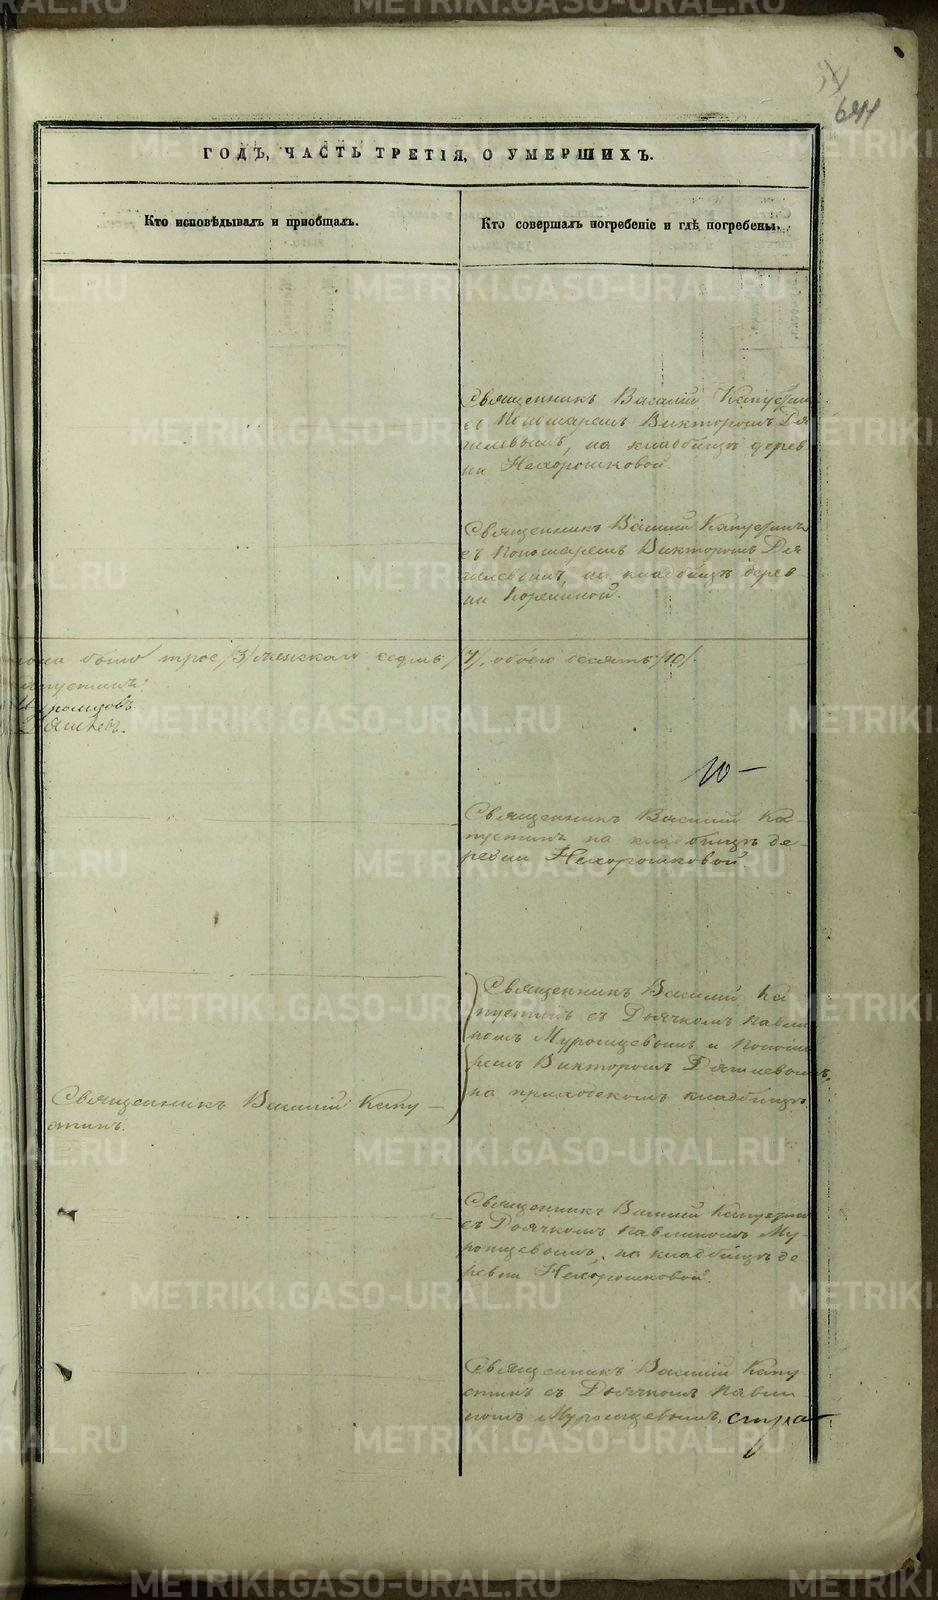 644
ГОДЪ, ЧАСТЬ ТРЕТІЯ, О УМЕРШИХЪ.
Кто исповѣдывалъ и пріобщалъ.
Кто совершалъ погребеніе и гдѣ погребены.
Священникъ Василій Капустин
съ Пономаремъ Викторомъ Дя
гилевымъ, на кладбищѣ дерев
ни Нехорошковой.
Священникъ Василій Капустинъ
съ Пономаремъ Викторомъ Дя
гилевымъ, на кладбищѣ дерев-
ни
было трое /3/ женскаго седмь /7/, обоего десять /10/.
Капустинъ
Муромцовъ
Дягилевъ.
10 —
Священникъ Василій Ка-
пустинъ на кладбищѣ де-
ревни Нехорошковой
Священникъ Василій Ка
пустинъ съ Дьячкомъ Павли
номъ Муромцевымъ и Понома
ремъ Викторомъ Дягилевымъ,
на приходскомъ кладбищѣ
Священникъ Василій Капу—
стинъ.
Священникъ Василій Капустин
съ Дьячкомъ Павлиномъ Му-
ромцевымъ, на кладбищѣ де-
ревни Нехорошковой.
Священникъ Василій Капу
стинъ съ Дьячкомъ Павли
номъ Муромцевымъ,
METRIKI.GASO-URAL.RU